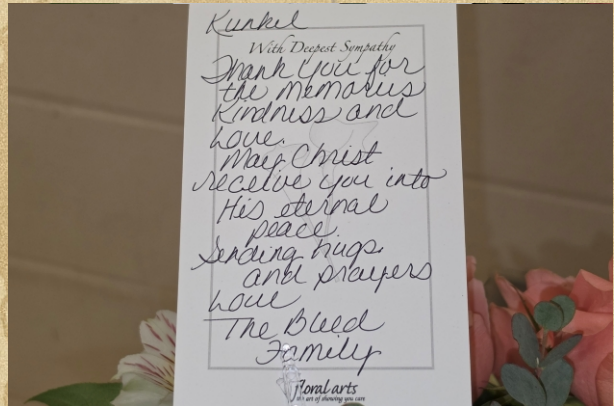 Kunkel
With Deepest Sympathy
Thank you for
the memories
Kindness and
Love.
May Christ
receive you into
His eternal
peace.
Sending hugs
and prayers
Love
The Bleed
Family
floral arts
the art of showing you care